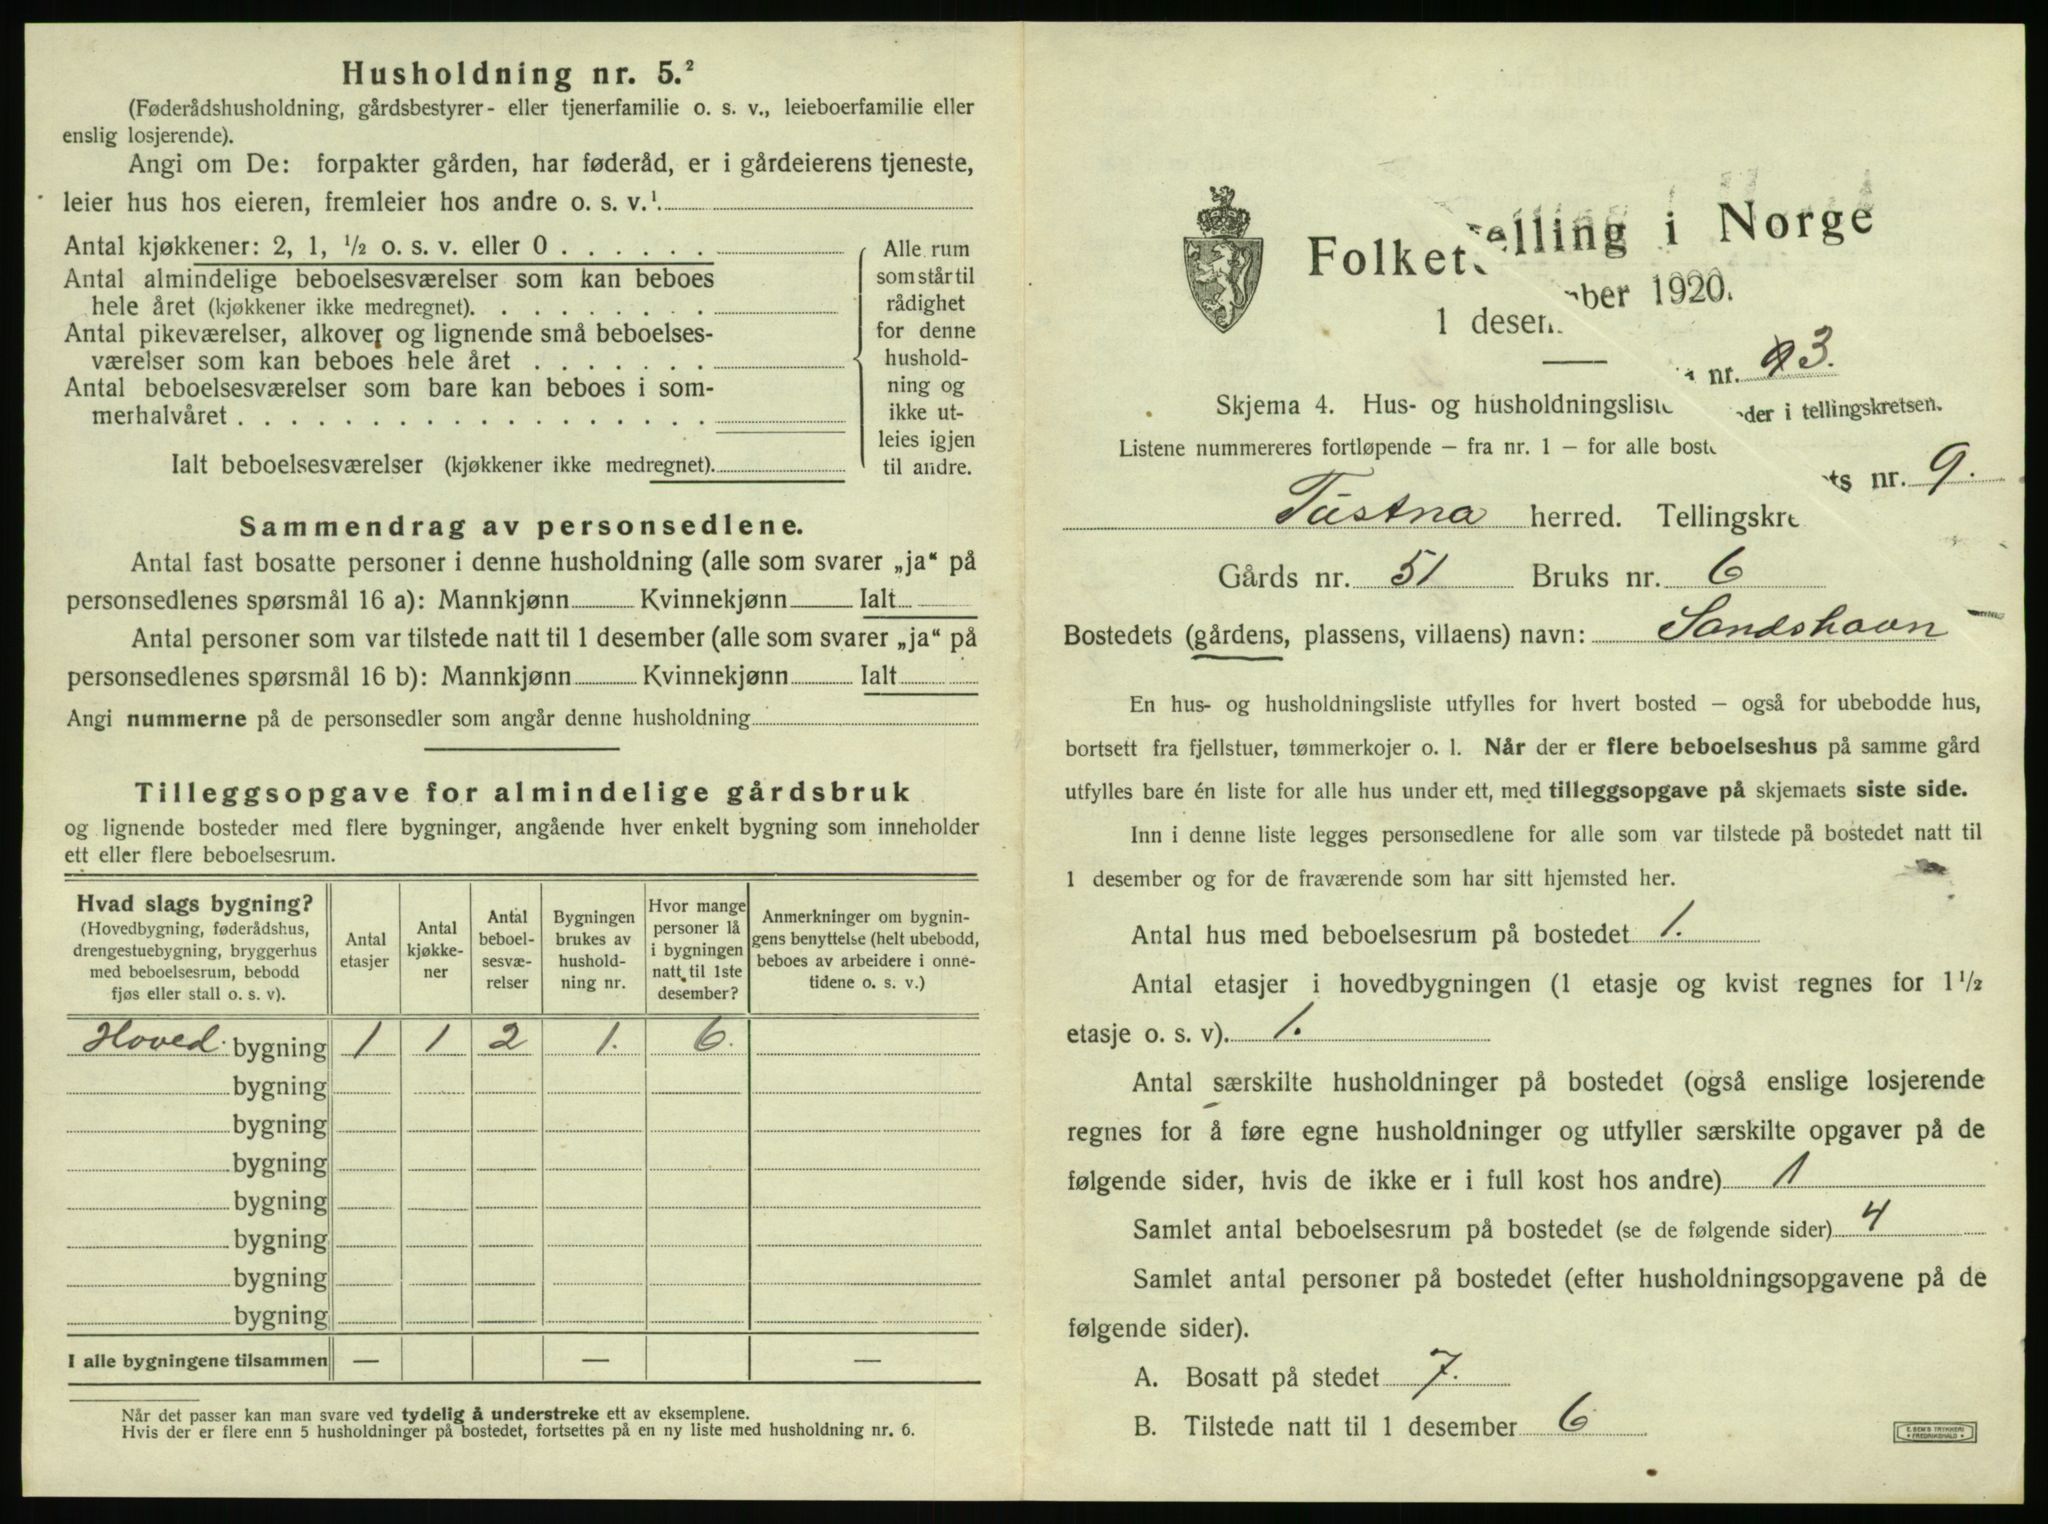 Husholdning nr. 5.²
(Føderådshusholdning, gårdsbestyrer- eller tjenerfamilie o. s. v., leieboerfamilie eller
enslig losjerende).
Angi om De: forpakter gården, har føderåd, er i gårdeierens tjeneste,
leier hus hos eieren, fremleier hos andre o. s. v.¹
Antal kjøkkener: 2, 1, ½ o. s. v. eller 0
Antal almindelige beboelsesværelser som kan beboes
hele året (kjøkkener ikke medregnet).
Antal pikeværelser, alkover og lignende små beboelses-
værelser som kan beboes hele året
Antal beboelsesværelser som bare kan beboes i som-
merhalvåret
Ialt beboelsesværelser (kjøkkener ikke medregnet).
Alle rum
som står til
rådighet
for denne
hushold-
ning og
ikke ut-
leies igjen
til andre.
Sammendrag av personsedlene.
Antal fast bosatte personer i denne husholdning (alle som svarer „ja“ på
personsedlenes spørsmål 16 a): Mannkjønn Kvinnekjønn Ialt
Antal personer som var tilstede natt til 1 desember (alle som svarer „ja“ på
personsedlenes spørsmål 16 b): Mannkjønn Kvinnekjønn Ialt
Angi nummerne på de personsedler som angår denne husholdning
Tilleggsopgave for almindelige gårdsbruk
og lignende bosteder med flere bygninger, angående hver enkelt bygning som inneholder
ett eller flere beboelsesrum.
Hvad slags bygning?
(Hovedbygning, føderådshus,
drengestuebygning, bryggerhus
med beboelsesrum, bebodd
fjøs eller stall o. s. v).
Antal
etasjer
Antal
kjøkke-
ner
Antal
beboel-
sesvæ-
relser
Bygningen
brukes av
hushold-
ning nr.
Hvor mange
personer lå
i bygningen
natt til 1ste
desember?
Anmerkninger om bygnin-
gens benyttelse (helt ubebodd,
beboes av arbeidere i onne-
tidene o. s. v.)
Hoved bygning 1 1 2 1. 6.
bygning
bygning
bygning
bygning
bygning
bygning
bygning
I alle bygningene tilsammen — — —
Når det passer kan man svare ved tydelig å understreke ett av eksemplene.
Hvis der er flere enn 5 husholdninger på bostedet, fortsettes på en ny liste med husholdning nr. 6.
Folketelling i Norge
1 desember 1920.
Skjema 4. Hus- og husholdningsliste nr. 3.
Listene nummereres fortløpende — fra nr. 1 — for alle bosteder i tellingskretsen.
Tustna herred. Tellingskrets nr. 9.
Gårds nr. 51 Bruks nr. 6
Bostedets (gårdens, plassens, villaens) navn: Sandshavn
En hus- og husholdningsliste utfylles for hvert bosted — også for ubebodde hus,
bortsett fra fjellstuer, tømmerkojer o. l. Når der er flere beboelseshus på samme gård
utfylles bare én liste for alle hus under ett, med tilleggsopgave på skjemaets siste side.
Inn i denne liste legges personsedlene for alle som var tilstede på bostedet natt til
1 desember og for de fraværende som har sitt hjemsted her.
Antal hus med beboelsesrum på bostedet 1.
Antal etasjer i hovedbygningen (1 etasje og kvist regnes for 1½
etasje o. s. v). 1.
Antal særskilte husholdninger på bostedet (også enslige losjerende
regnes for å føre egne husholdninger og utfyller særskilte opgaver på de
følgende sider, hvis de ikke er i full kost hos andre) 1
Samlet antal beboelsesrum på bostedet (se de følgende sider) 4
Samlet antal personer på bostedet (efter husholdningsopgavene på de
følgende sider).
A. Bosatt på stedet 7.
B. Tilstede natt til 1 desember 6
E. SEM'S TRYKKERI
FREDRIKSHALD